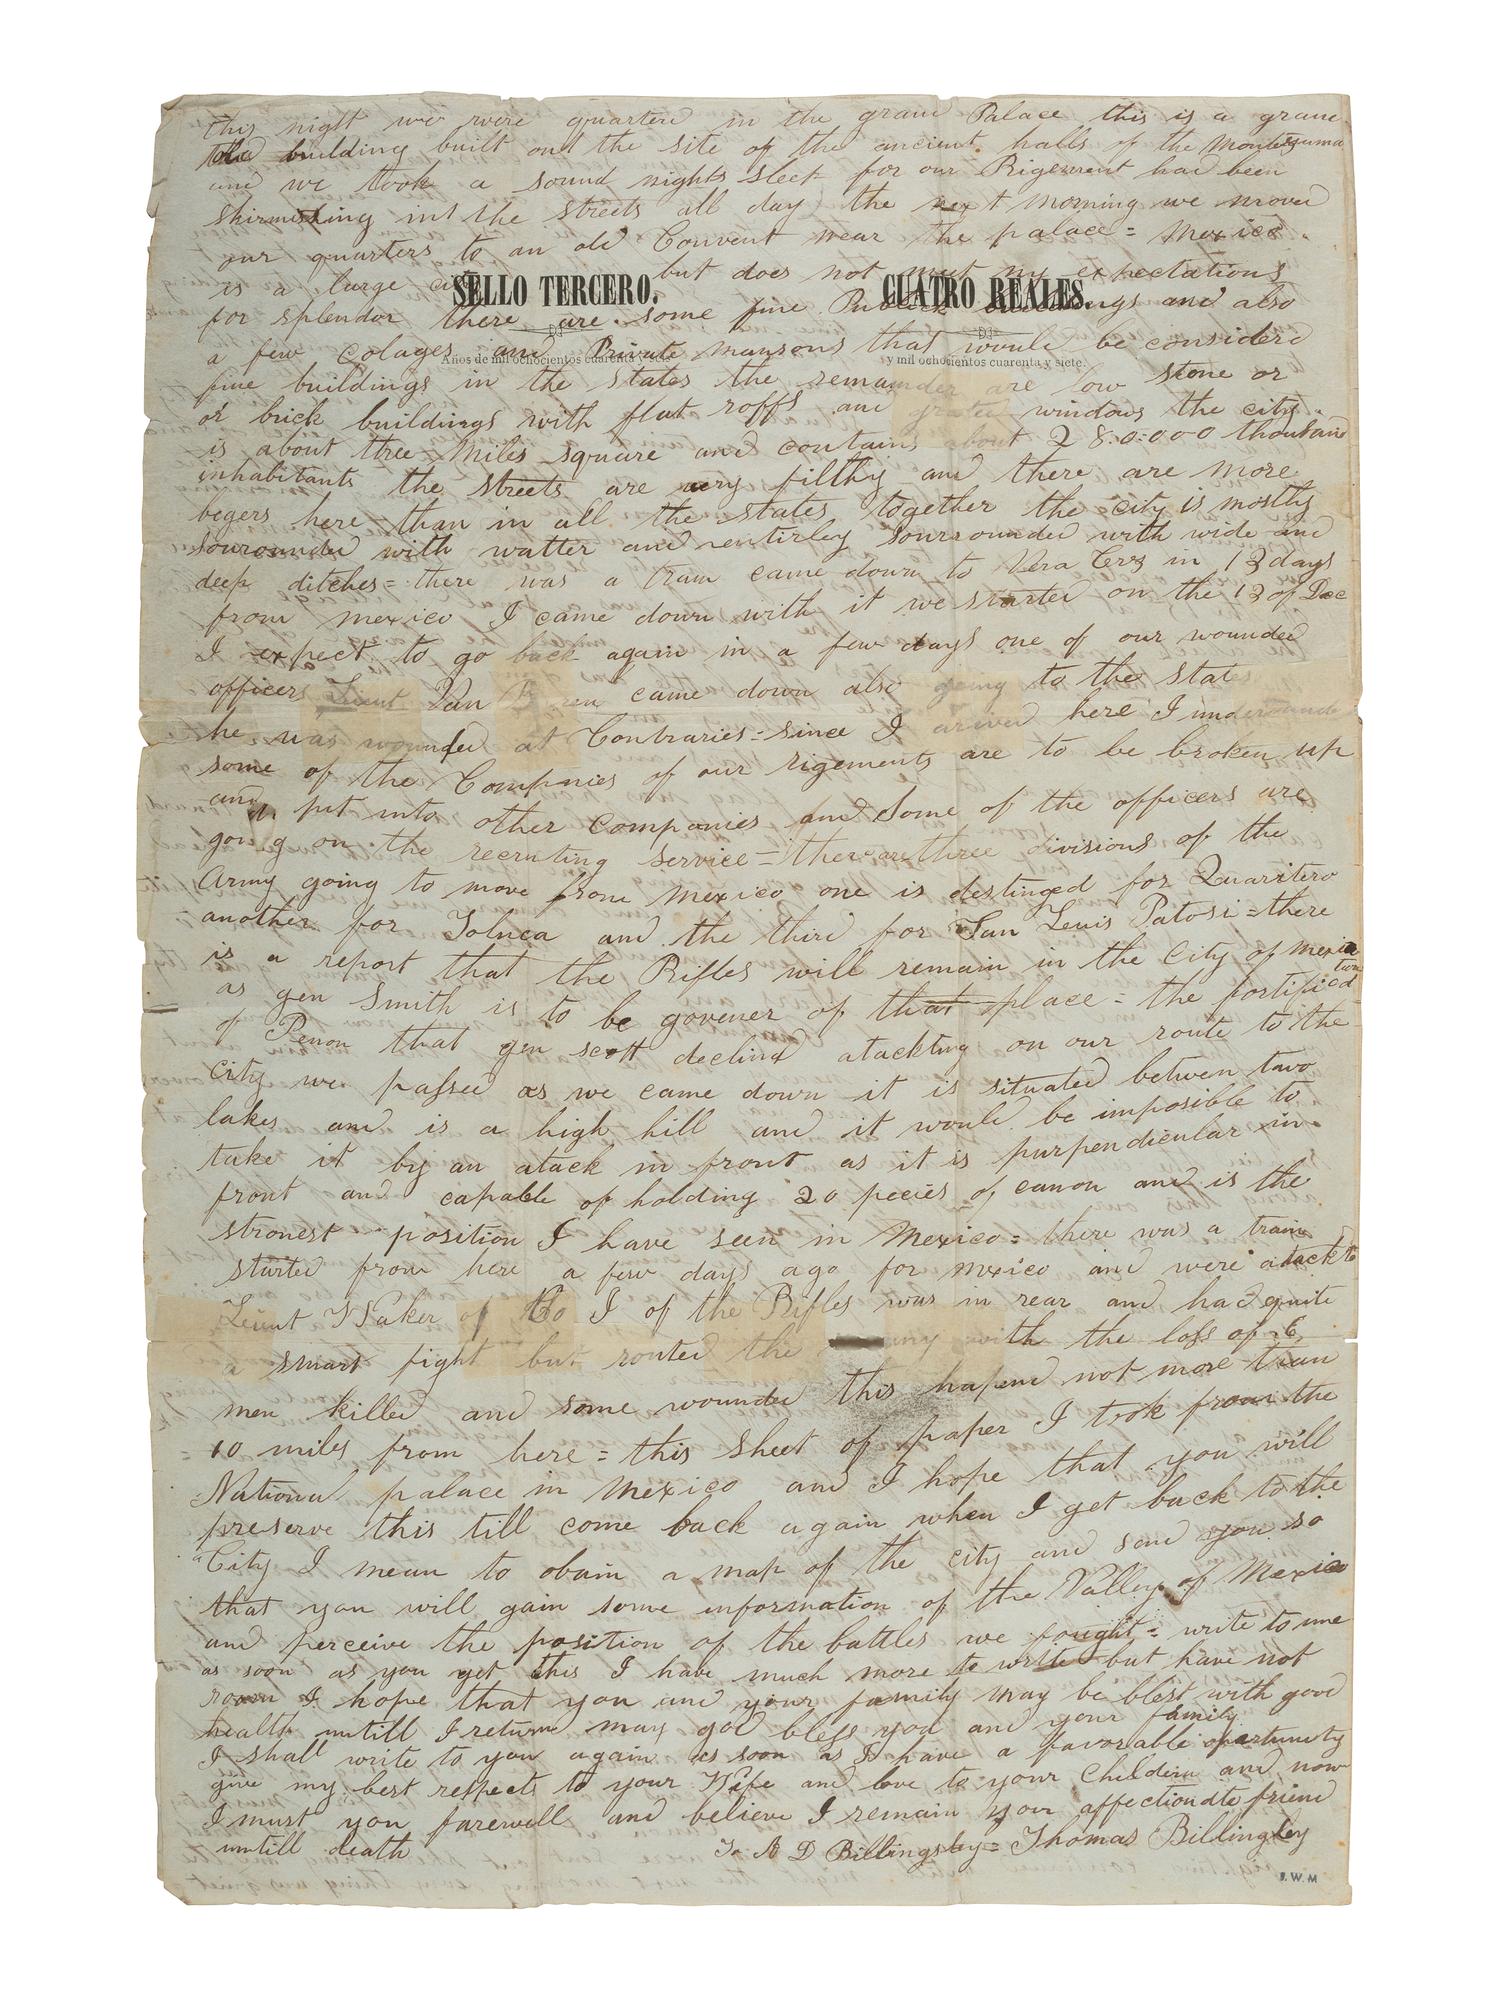 this night we were quarterd in the grand Palace this is a grand
old building built on the site of the ancient halls of the Montezuma
and we took a sound nights sleep for our Rigement had been
skirmishing in the streets all day the next morning we moved
our quarters to an old Convent near the palace = Mexico
is a large city but does not meet my expectations
SELLO TERCERO. CUATRO REALES.
for splendor there are some fine Publick buildings and also
a few colages and Private mansons that would be considerd
Años de mil ochocientos cuarenta y seis y mil ochocientos cuarenta y siete.
fine buildings in the States the remainder are low stone or
or brick buildings with flat roffs and grated windows the city
is about three miles square and contains about 280:000 thousand
inhabitants the streets are very filthy and there are more
begers here than in all the states together the city is mostly
sourounded with watter and entirley sourrounded with wide and
deep ditches = there was a train came down to Vera Crus in 13 days
from mexico I came down with it we started on the 13 of Dec
I expect to go back again in a few days one of our wounded
officers Lieut Van Buren came down also going to the States
he was wounded at Contraries = since I arived here I understand
some of the Companies of our rigements are to be broken up
and put into other companies and some of the officers are
going on the recruting service = there are three divisions of the
Army going to move from mexico one is destinged for Quarritero
another for Toluca and the third for San Leuis Patosi = there
is a report that the Rifles will remain in the City of mexico
as gen Smith is to be govener of that place = the fortification
of Penon that gen scott declind atackting on our route to the
city we passed as we came down it is situated betwen two
lakes and is a high hill and it would be imposible to
take it by an atack in front as it is purpendicular in
front and capable of holding 20 pecies of canon and is the
stronest position I have seen in Mexico = there was a train
started from here a few days ago for mexico and were atackt
Lieut Walker of Co I of the Rifles was in rear and had quite
a smart fight but routed the enemy with the loss of 6
men killed and some wounded this hapend not more than
10 miles from here = this sheet of paper I took from the
National palace in Mexico and I hope that you will
preserve this till come back again when I get back to the
City I mean to obain a map of the city and send you so
that you will gain some information of the Valley of Mexico
and perceive the position of the battles we fought = write to me
as soon as you get this I have much more to write but have not
room I hope that you and your family may be blest with good
health untill I return may god bless you and your family
I shall write to you again as soon as I have a favorable opartunity
give my best respects to your Wife and love to your Childern and now
I must you farewell and believe I remain your affectiondte friend
untill death To A D Billingsley = Thomas Billingley
J. W. M